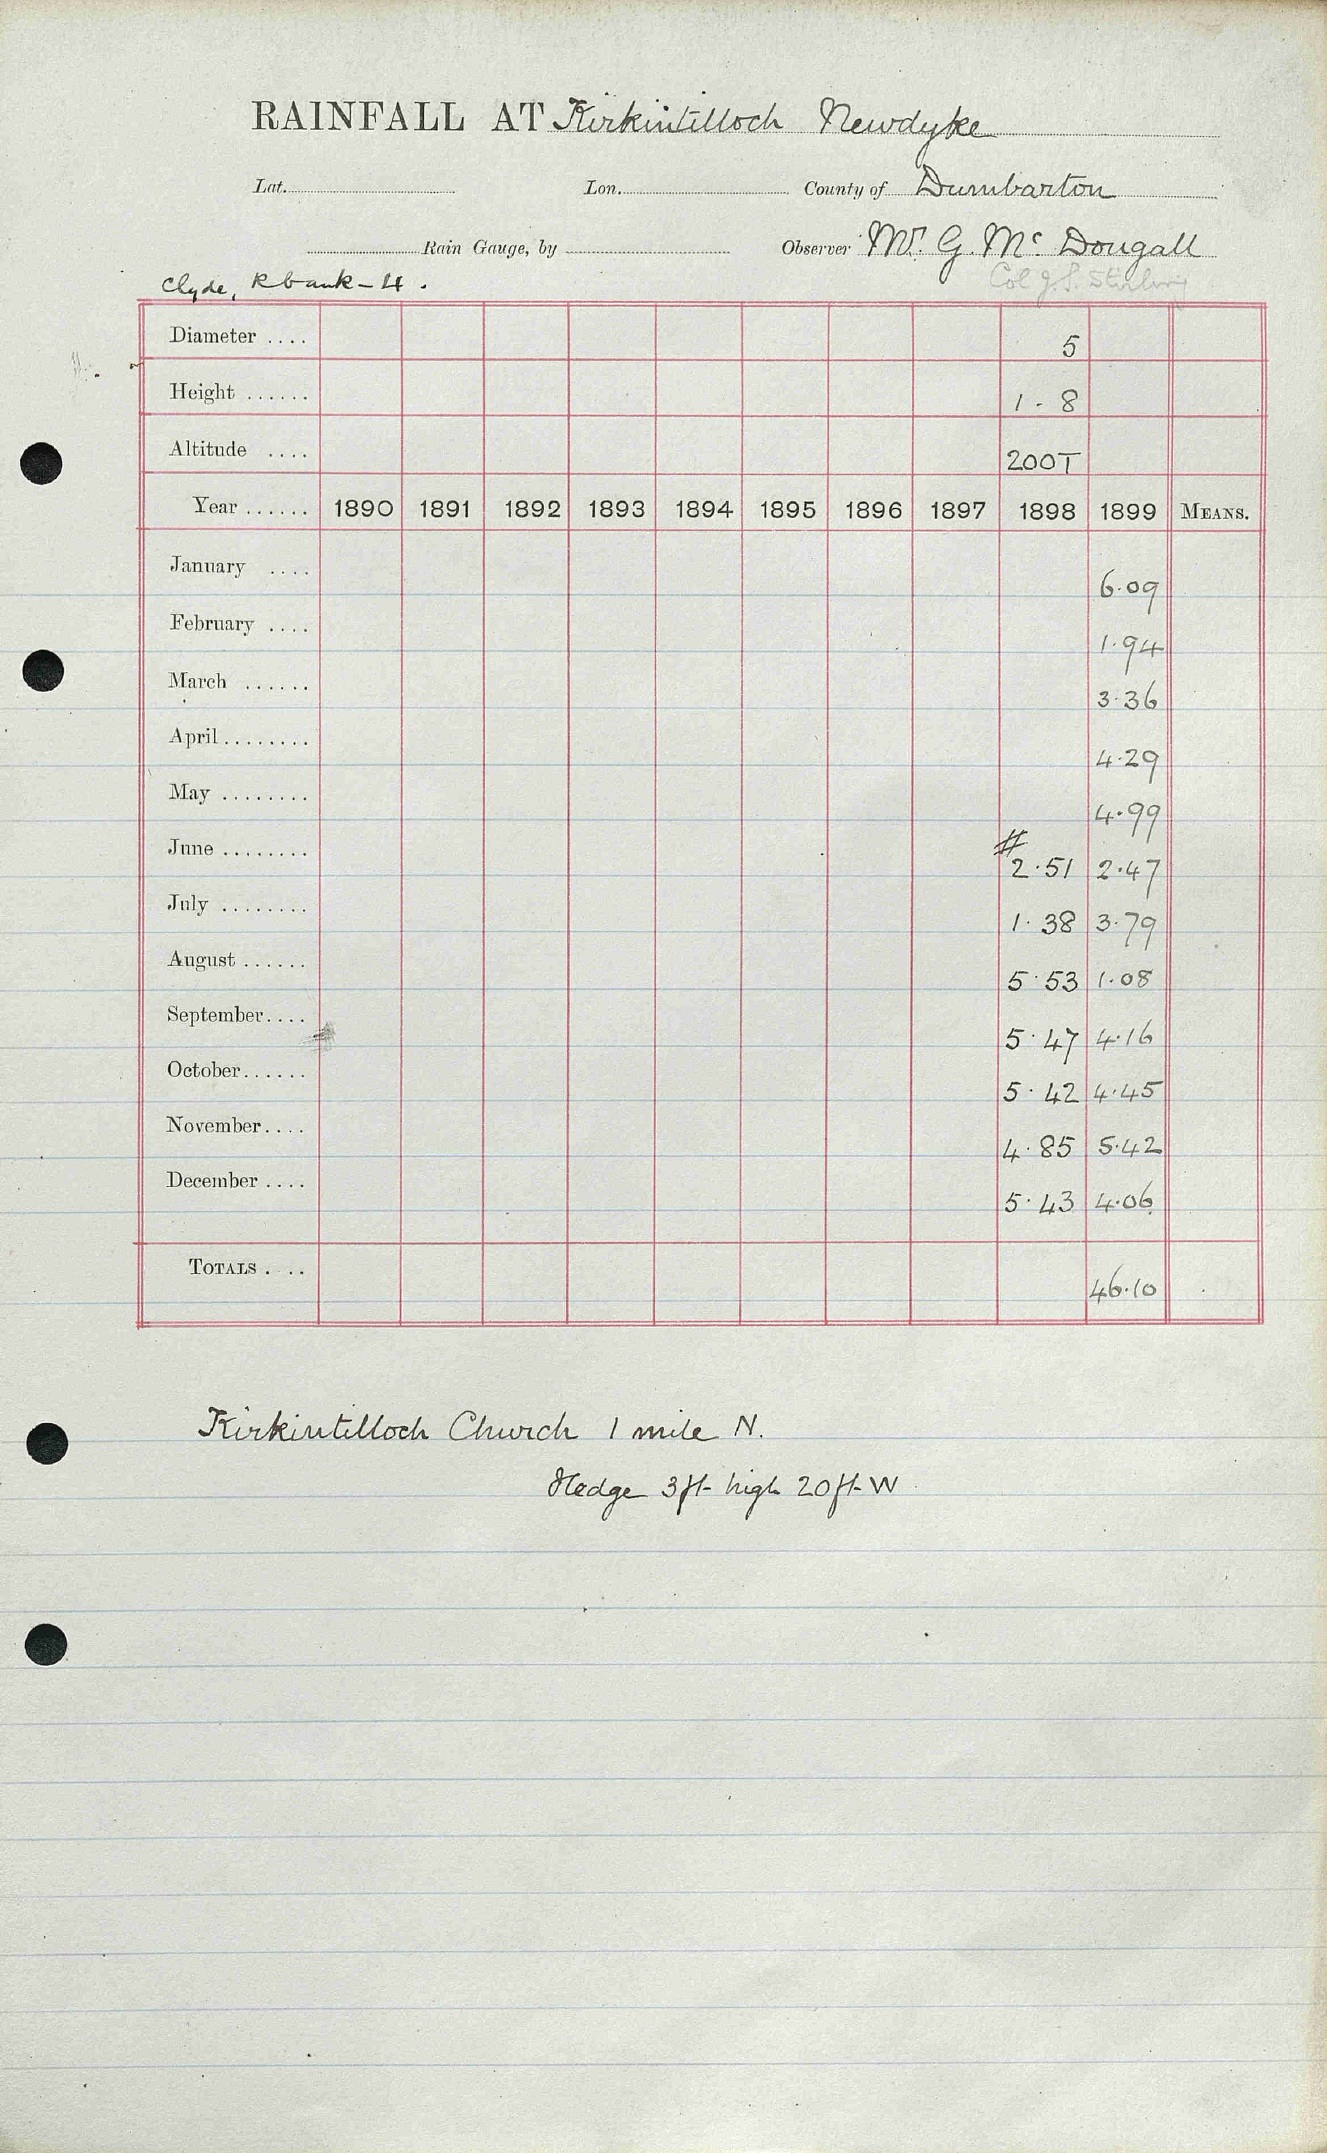 RAINFALL AT Kirkintilloch Newdyke
Lat. Lon. County of Dumbarton
Rain Gauge, by Observer Mr. G. Mc Dougall
Clyde, R bank - 4. Col J. S. Stirling
Diameter .... 5
Height ...... 1 - 8
Altitude .... 200T
Year ...... 1890 1891 1892 1893 1894 1895 1896 1897 1898 1899 MEANS.
January .... 6.09
February .... 1.94
March ...... 3.36
April ........ 4.29
May ........ 4.99
June ........ # 2.51 2.47
July ........ 1.38 3.79
August ...... 5.53 1.08
September.... 5.47 4.16
October...... 5.42 4.45
November.... 4.85 5.42
December .... 5.43 4.06
TOTALS . .. 46.10
Kirkintilloch Church 1 mile N.
Hedge 3ft high 20ft W